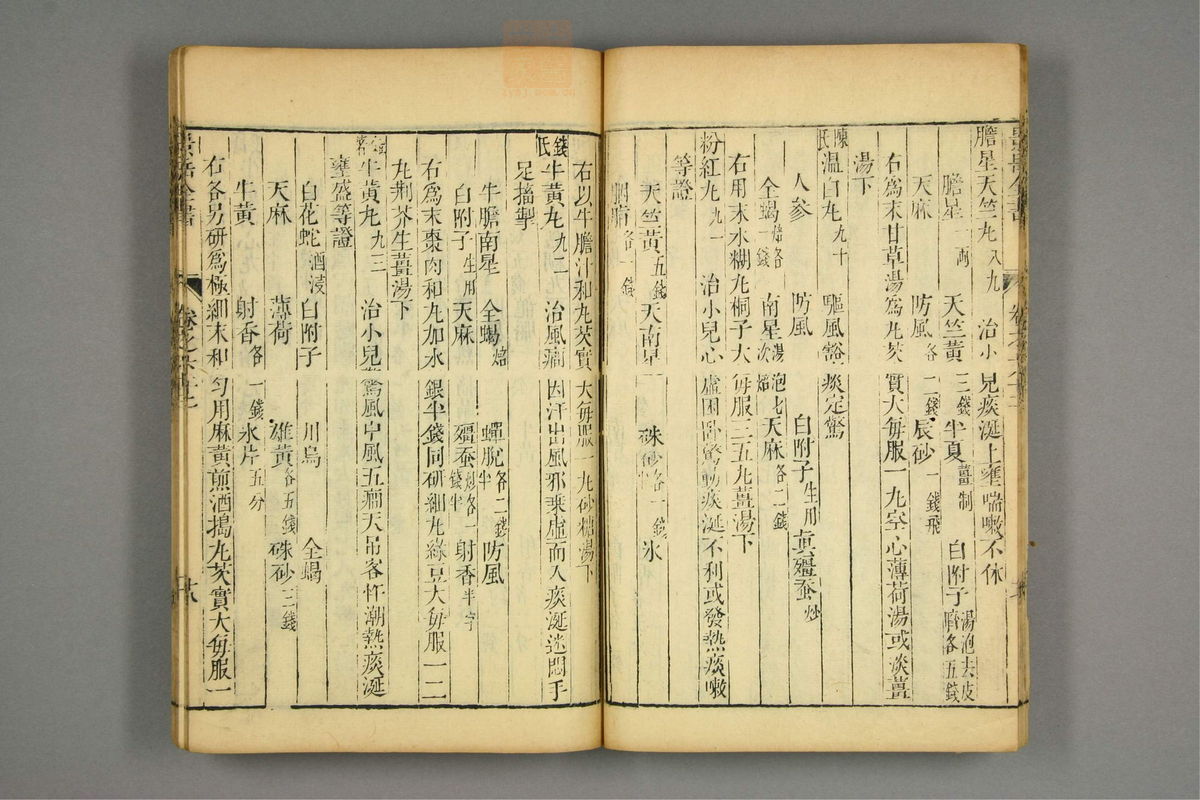 膽星天竺丸八九 治小兒痰涎上壅喘嗽不休
膽星一兩 天竺黃三錢 半夏薑制 白附子湯泡去皮臍各五錢
天麻 防風各二錢 辰砂一錢飛
右爲末甘草湯爲丸芡實大每服一丸空心薄荷湯或淡薑
湯下
陳氏溫白丸九十 驅風豁痰定驚
人參 防風 白附子生用 真殭蚕炒
全蝎焙各一錢 南星湯泡七次焙 天麻各二錢
右用末水糊丸桐子大每服三五丸薑湯下
粉紅丸九一 治小兒心虛困卧驚動痰涎不利或發熱痰嗽
等證
天竺黃五錢 天南星 硃砂各一錢 氷
胭脂各一錢
右以牛膽汁和丸芡實大每服一丸砂糖湯下
錢氏牛黃丸九二 治風癇因汗出風邪乘虛而入痰涎迷悶手
足搐掣
牛膽南星 全蝎焙 蟬脫各二錢半 防風
白附子生用 天麻 殭蚕炒各一錢半 射香半字
右爲末棗肉和丸加水銀半錢同研細丸綠豆大每服一二
丸荆芥生薑湯下
牛黃丸九三 治小兒驚風中風五癇天吊客忤潮熱痰涎
壅盛等證
白花蛇酒浸 白附子 川烏 全蝎
天麻 薄荷 雄黃各五錢 硃砂三錢
牛黃 射香各一錢 氷片五分
右各另研爲極細末和勻用麻黃煎酒搗丸芡實大每服一
景岳全書 卷之六十二